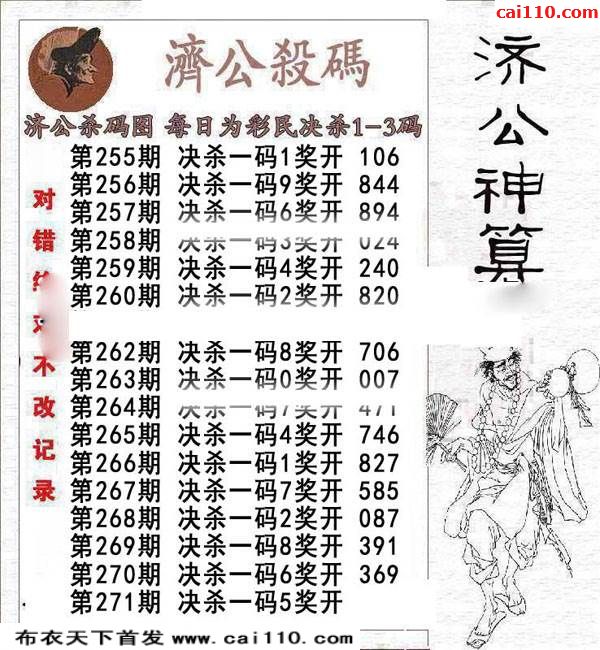 cai110.com
濟公殺碼
济公神算
济公杀码图 每日为彩民决杀1-3码
第255期 决杀一码1奖开 106
第256期 决杀一码9奖开 844
第257期 决杀一码6奖开 894
第258期 决杀一码3奖开 024
第259期 决杀一码4奖开 240
第260期 决杀一码2奖开 820
第262期 决杀一码8奖开 706
第263期 决杀一码0奖开 007
第264期 决杀一码7奖开 471
第265期 决杀一码4奖开 746
第266期 决杀一码1奖开 827
第267期 决杀一码7奖开 585
第268期 决杀一码2奖开 087
第269期 决杀一码8奖开 391
第270期 决杀一码6奖开 369
第271期 决杀一码5奖开
对错
不改记录
布衣天下首发 www.cai110.com